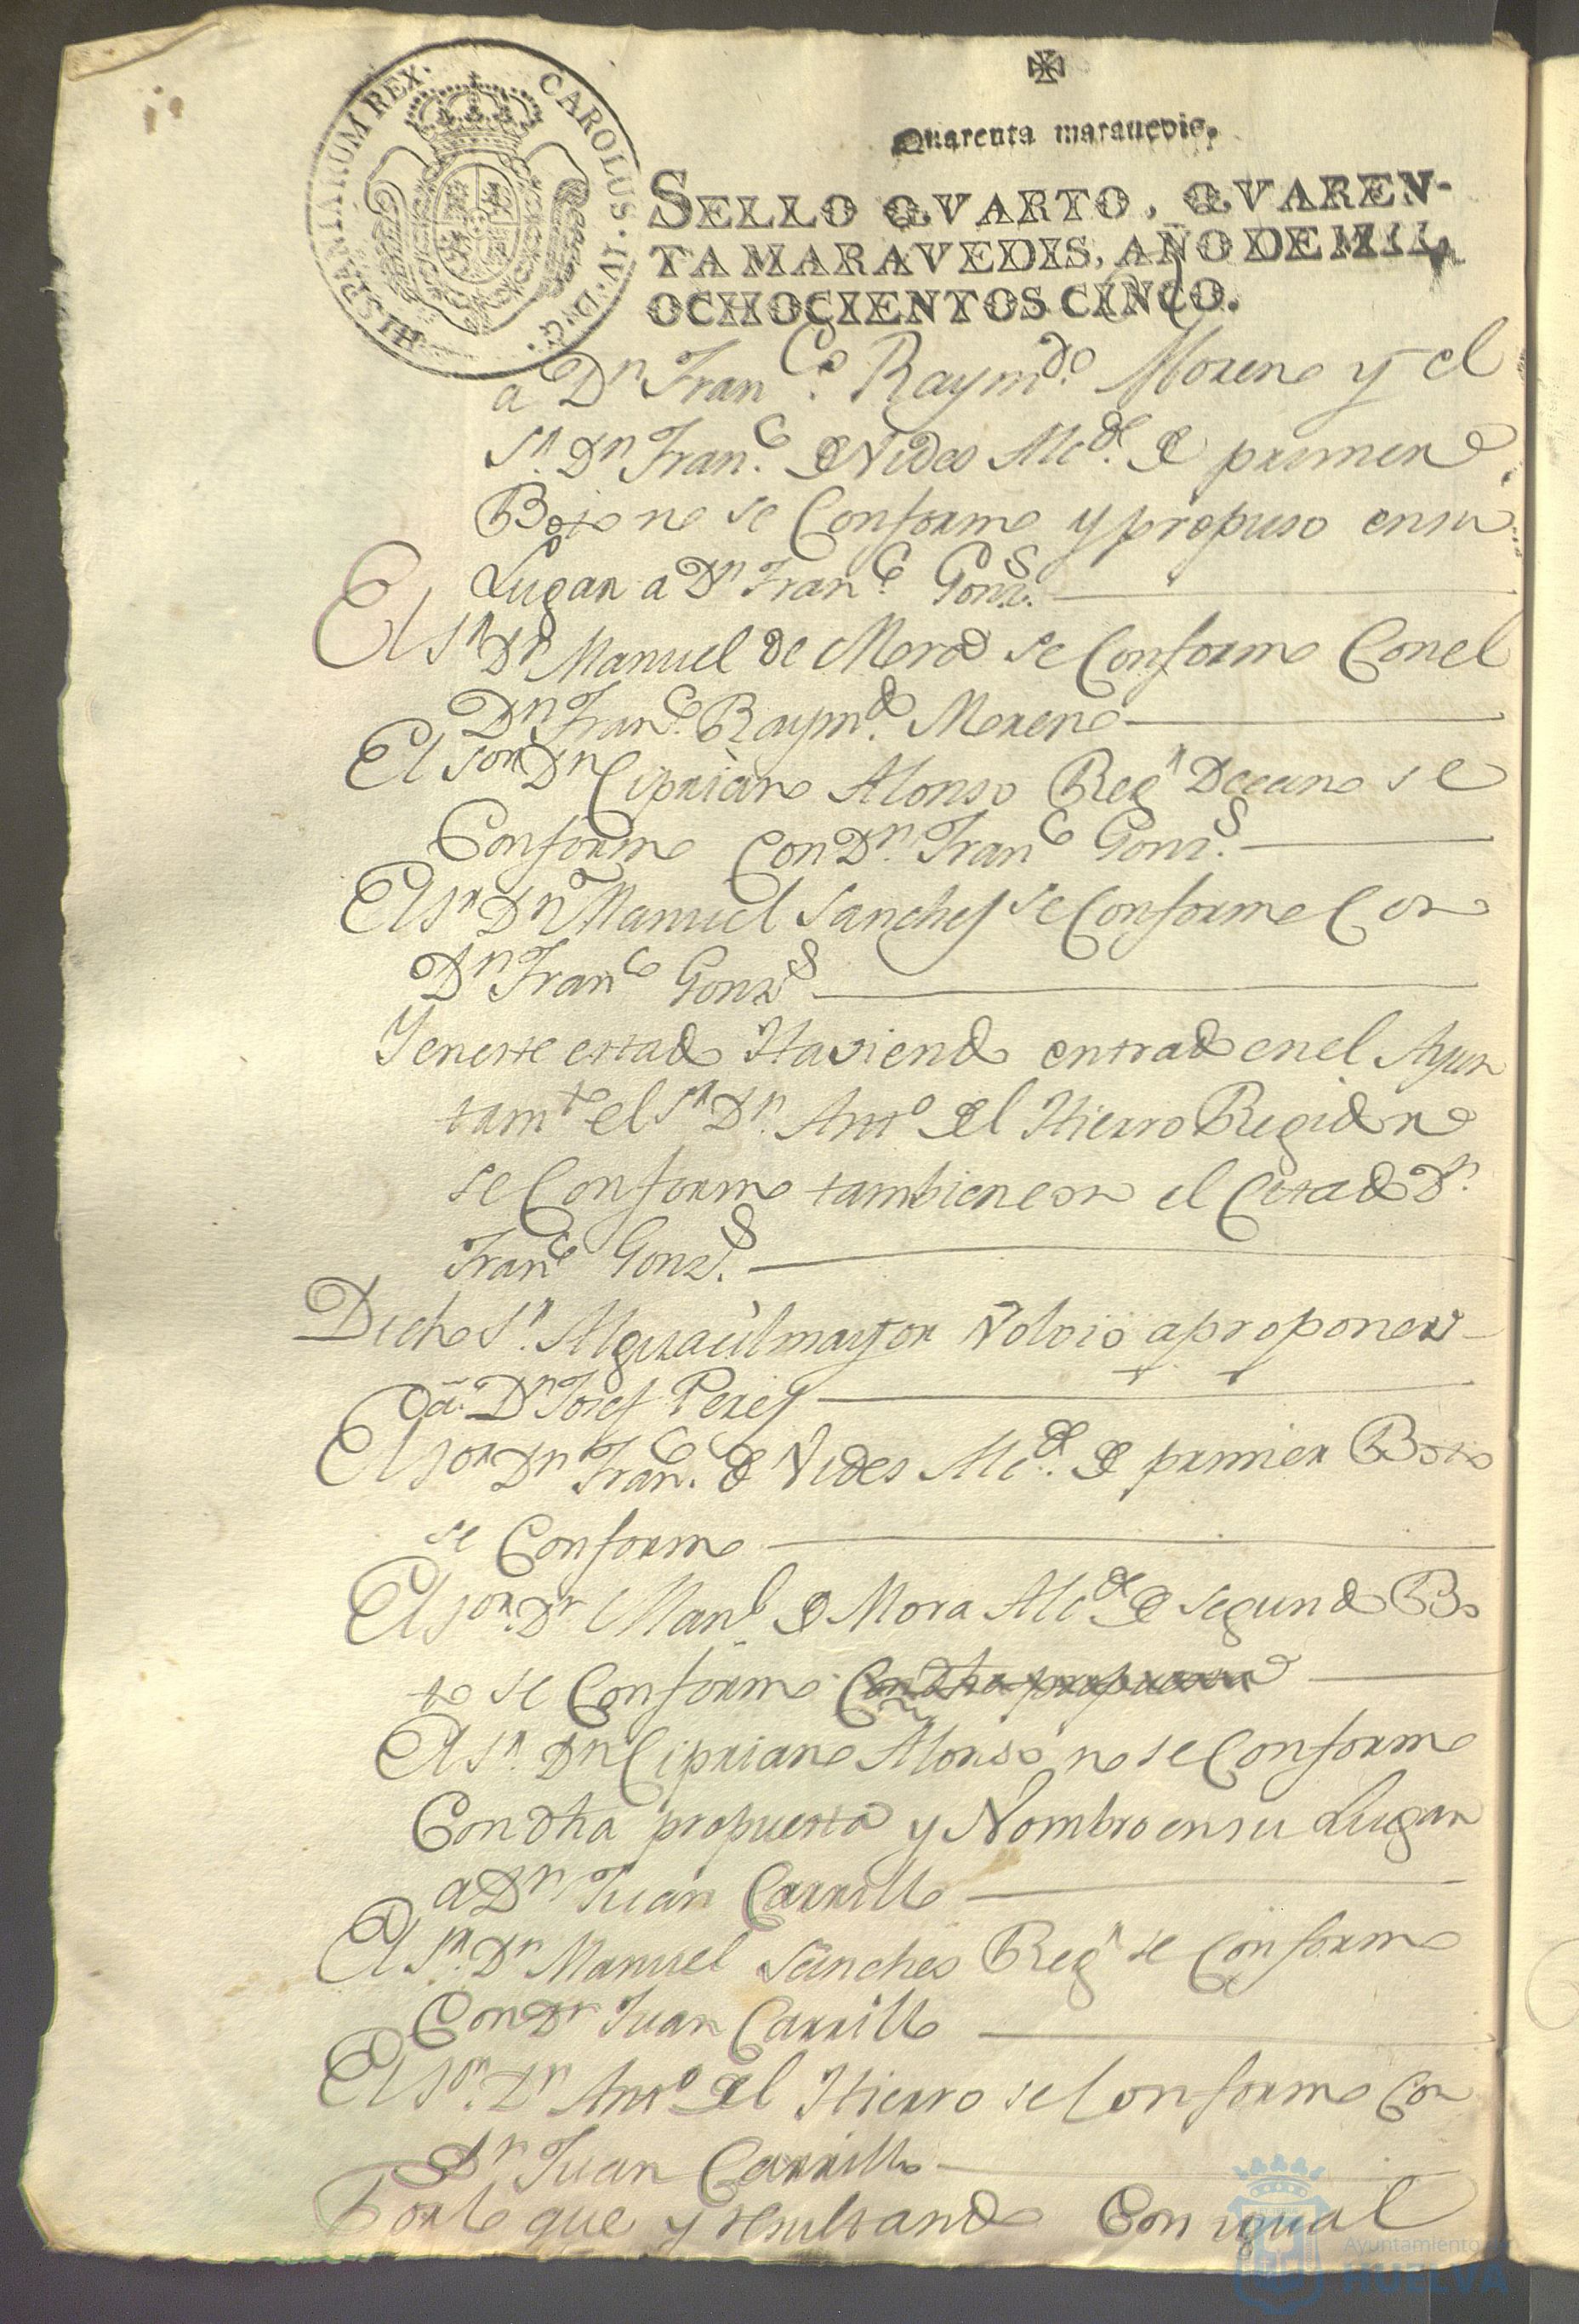 HISPANIARUM REX. CAROLUS. IV. D. G.
Quarenta marauedis.
SELLO QVARTO, QVAREN-
TA MARAVEDIS, AÑO DE MIL
OCHOCIENTOS CINCO.
a Dn Franco. Raymdo. Moreno y el
Sr. Dn Franco. de Vides Alcde. de primero
Boto no se Conformo y propuso en su
Lugar a Dn Franco. Gonzs.
El Sr Dn Manuel de Mora se Conformo Con el
Dn Franco. Raymdo. Moreno
El Sor Dn Cipriano Alonso Regr Decano se
Conformo Con Dn. Franco Gonzs.
El Sr Dn Manuel Sanches se Conformo Con
Dn Franco Gonzs
Y en este estado Haviendo entrado en el Ayun
tamto el Sr Dn. Anto del Hierro Regidor
se Conformo tambien con el Citado Dn.
Franco Gonzs.
Dicho Sr. Alguacil mayor Volvio a proponer
a Dn Josef Perez
El Sor Dn Franco. de Vides Alcde. de primer Boto
se Conformo
El Sor. Dn Manl de Mora Alcde de segundo Bo
to se Conformo Con dha propuesta
El Sr. Dn Cipriano Alonso no se Conformo
Con dha propuesta y Nombro en su Lugar
a Dn Juan Carrillo
El Sr. Dn Manuel Sanches Regr se Conformo
Con Dn Juan Carrillo
El Sr. Dn Anto del Hierro se Conformo Con
Dn Juan Carrillo
Por lo que y resultando Con igual
Ayuntamiento de
HUELVA